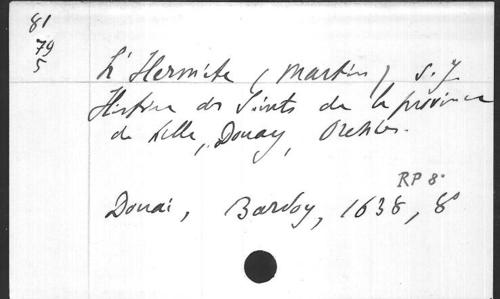 81
79
5
L'Hermite (Martin), S.J.
Histoire des Saints de la province
de Lille, Douay, Orchies.
RP 8°
Douai, Bardou, 1638, 8°